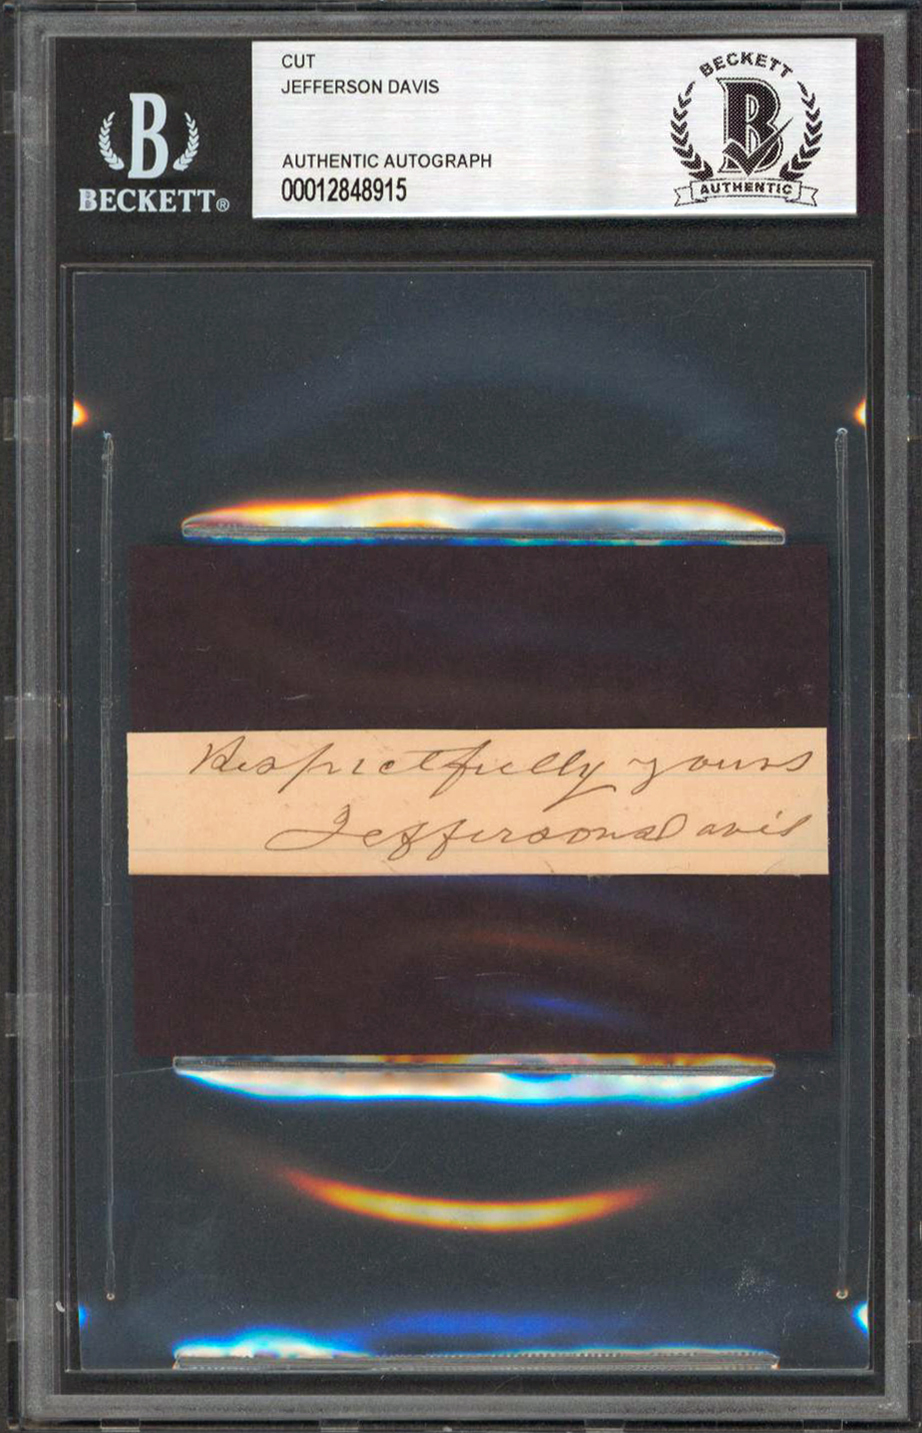 CUT
JEFFERSON DAVIS
AUTHENTIC AUTOGRAPH
00012848915
B
BECKETT®
BECKETT
B
AUTHENTIC
Respectfully yours
Jefferson Davis